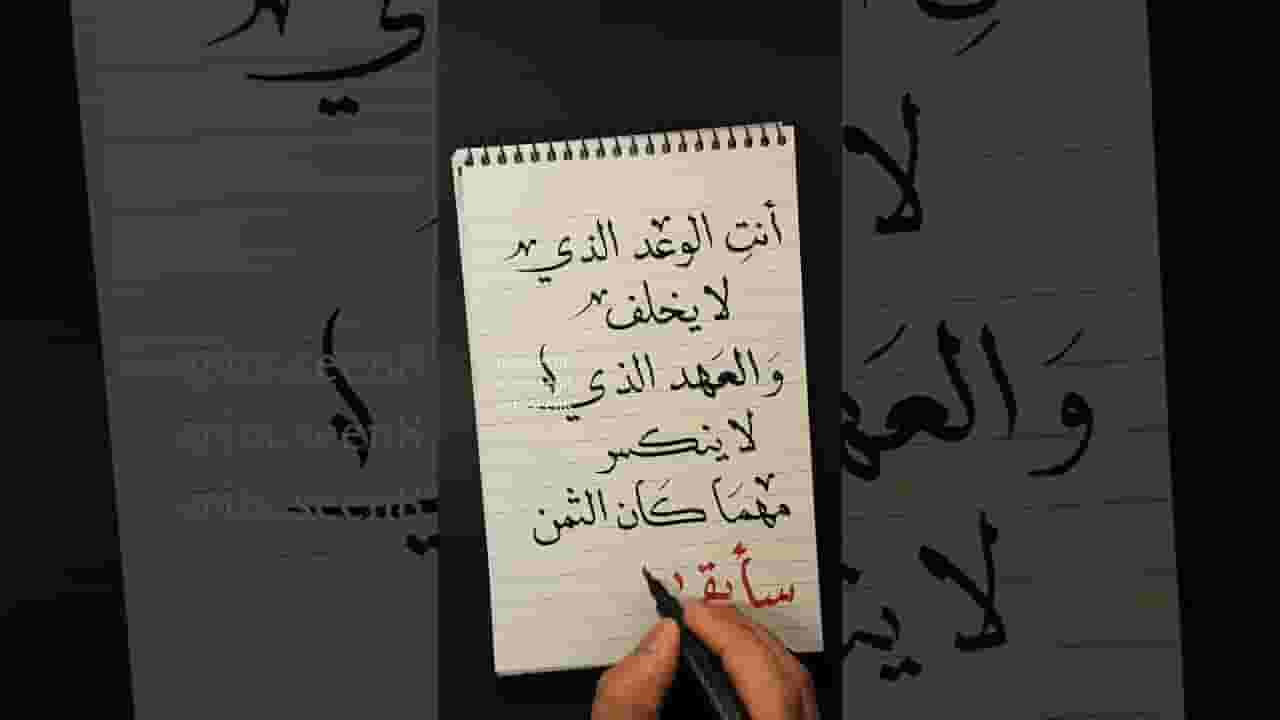 أنتِ الوعد الذي
لا يخلف
وَالعَهد الذي
لا ينكسر
مهمَا كَان الثمن